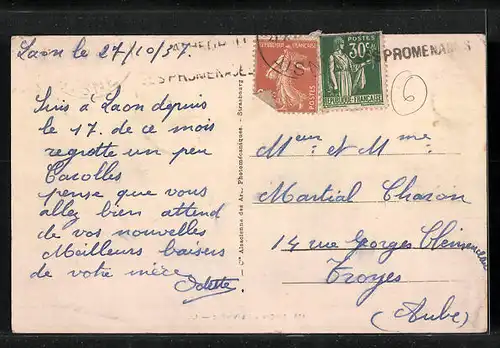 Laon le 27/10/37.
SES PROMENADES
PROMENADES
REPUBLIQUE FRANÇAISE
POSTES
POSTES
30c
REPUBLIQUE FRANÇAISE
6
Suis à Laon depuis
le 17. de ce mois
regrette un peu
Carolles
pense que vous
allez bien attend
de vos nouvelles
Meilleurs baisers
de votre mère
Odette
Cie Alsacienne des Arts Photomécaniques - Strasbourg
Meur et Mme
Martial Charon
14 rue Georges Clemenceau
Troyes
(Aube)